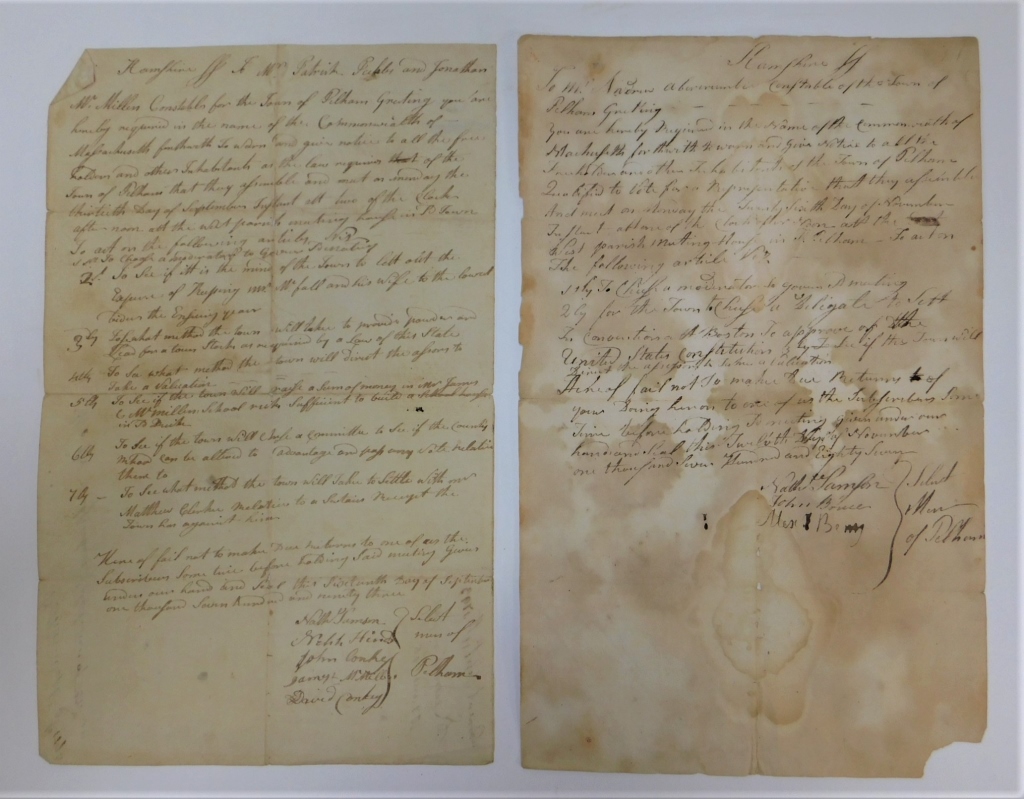 Hampshire ss To Mrs Patrick Peebls and Jonathan
Mc Millen Constabls for the Town of Pelham Greeting you are
hereby required in the name of the Commonwealth of
Massachusetts forthwith To warn and give notice to all the free
holders and other Inhabitants as the law requires of the
Town of Pelham that they assemble and meet on munday the
thirtieth Day of September Instant att one of the Clock
after noon att the west parrish meeting house in sd Town
To act on the following articles viz
1st To Chuse a modrator to Govern sd meeting
2ly To See if itt is the mind of the Town to lett out the
Expence of Keeping mr McFall and his wife to the lowest
bider the Ensuing year
3ly To See what method the town will take to provide powder and
Lead for a town Stock as required by a Law of this State
4ly To See what method the town will Direct the asessors to
Take a Valuation
5ly To See if the town will raise a Sum of money in mr James
Mc Millen School Sufficient to build a School house
in sd
6ly To See if the town will Chuse a Committee to See if the County
Rhoad can be altred to advantage and pass any vote relative
there to
7ly To See what method the town will take to Settle with mr
Matthew Clerke Relative to a Sertain Receipt the
Town has against him
Hereof fail not to make Due Returns to one of us the
Subscribers Some time before holding Said meeting Given
under our hand and Seal this Twelveth Day of September
one thousand Seven hundred and ninety three
Nath Samson
Nehh Hinds
John Conkey
James McMillen
David Conkey
Select
men of
Pelham
Hampshire ss
To Mr Andrew Abercrombe Constable of the Town of
Pelham Greeting
You are hereby Required in the Name of the Commonwealth of
Machusetts forthwith to warn and Give Notice to all the
Freeholders and other Inhabitents of the Town of Pelham
Qualified to Vote for a Representative that they assemble
And meet on munday the Twenty Sixth Day of November
Instant at one of the Clock afternoon att the
West parrish Meating House in sd Pelham To act on
The following article Viz
1ly To Chuse a moderator to govern sd meeting
2ly for the Town to Chuse a Deligate to Sett
In Convention att Boston To approve of the
United States Constitution 3ly To See if the Town will
Direct the asessors to take a Valuation
Hereof fail not to make Due Returns of
your Doing hereon to one of us the Subscribers Some
Time before holding sd meeting given under our
hand and Seal this Twelfth Day of November
one thousand Seven Hundred and Eighty Seven
Nathl Samson
John Bruce
Select
Men
of Pelham